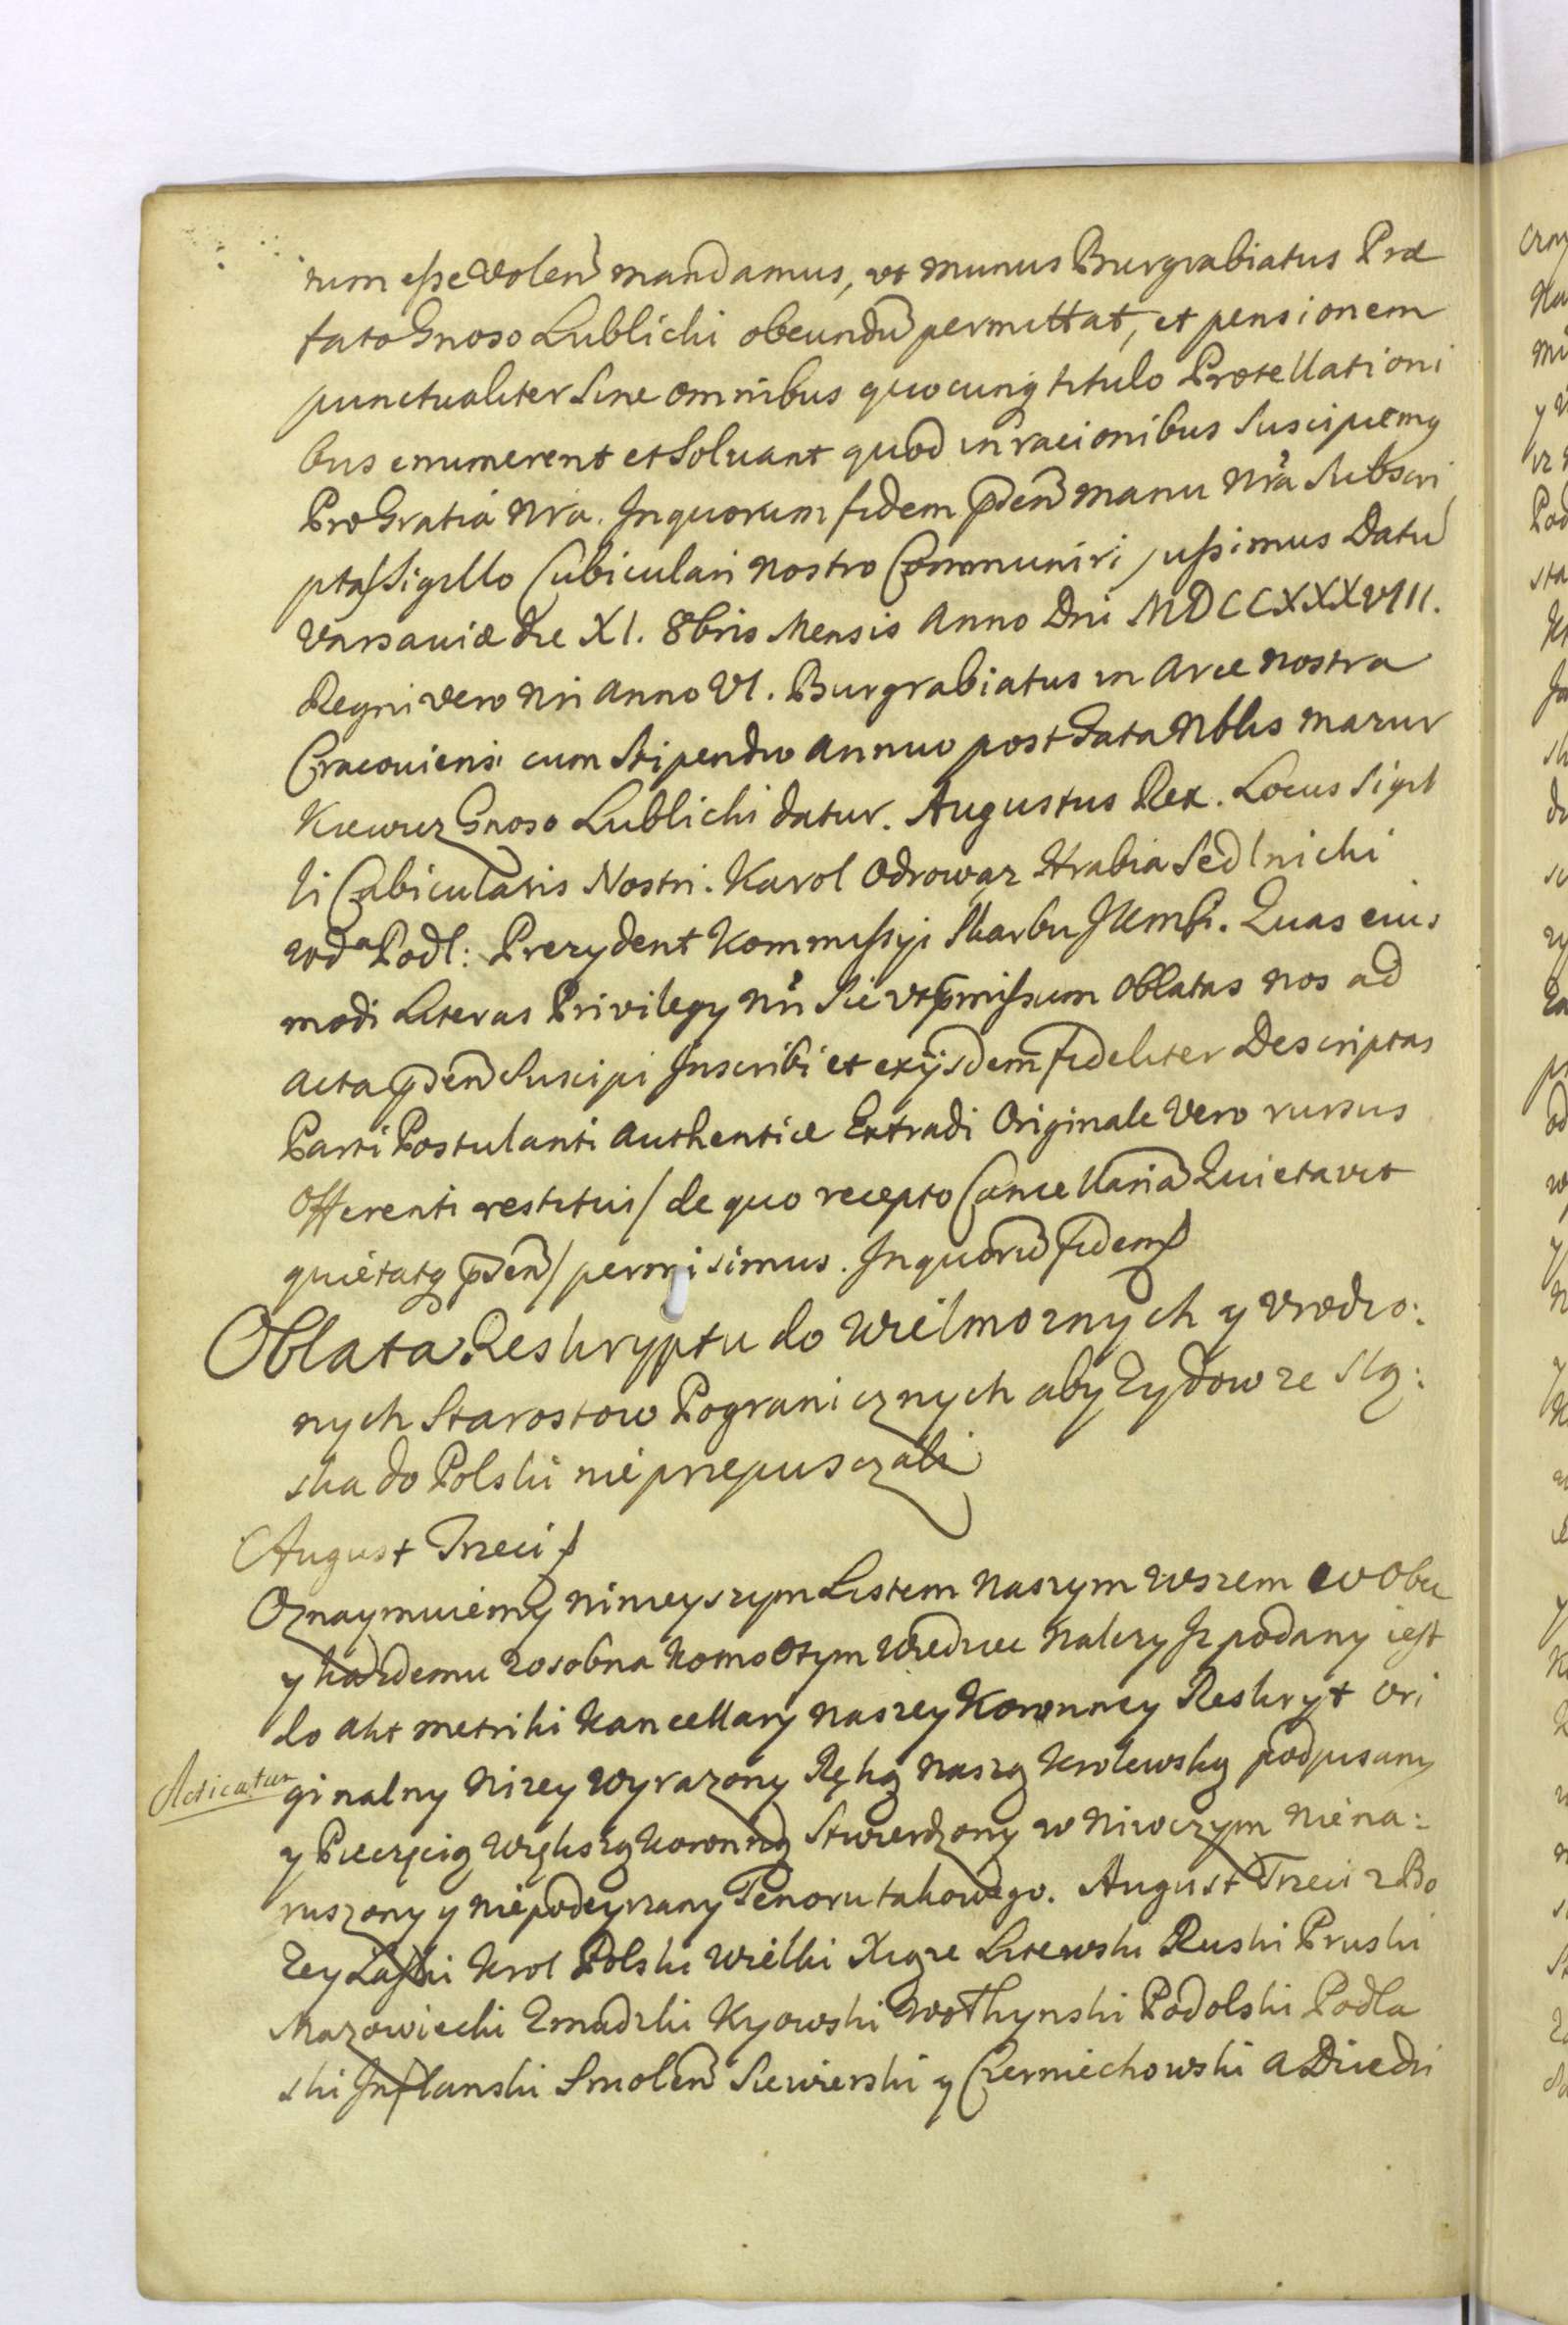 rum esse volen mandamus, ut munus Burgrabiatus Præ
fato Gnoso Lublicki obeundũ permittat, et pensionem
punctualiter sine omnibus quocunq titulo Protellationi
bus enumerent et solvant quod in racionibus suscipiemg
Pro Gratia Nra. In quorum fidem pñsen manu Nra subscri
ptas Sigillo Cubiculari Nostro Communiri jussimus Datũ
Varsaviæ die XI. 8bris Mensis Anno Dni MDCCXXXVIII.
Regni vero Nri Anno VI. Burgrabiatus in Arce nostra
Cracoviensi cum stipendio annuo post data Nblis Mazur
kiewicz Gnoso Lublicki datur. Augustus Rex. Locus Sigil
li Cubicularis Nostri. Karol Odrowąz Hrabia Sedlnicki
wda Podl: Prezydent Kommissyi Skarbu JKMsci. Quas eius
modi Literas Privilegy Nri sic ut pmissum oblatas nos ad
acta pñsen suscipi Inscribi et exijsdem fideliter Descriptas
Parti Postulanti authenticæ Extradi Originale vero rursus
Offerenti restitui / de quo recepto Cancellariã Quietavit
quietatq pñsen / permisimus. In quorũ fidem
Oblata Reskryptu do Wielmoznych y Urodzo:
nych Starostow Pogranicznych aby Zydow ze Slą:
ska do Polski nie przepusczali
August Trzeci
Oznaymuiemy ninieyszym Listem naszym wszem w obec
y kazdemu zosobna komo otym wiedziec nalezy Jz podany iest
do akt metriki kancellary naszey Koronney Reskrypt ori
Acticatur
ginalny nizey wyrazony Ręką naszą krolewską podpisany
y Pieczęcią większą koronną stwierdzony w niwczym niena:
ruszony y niepodeyrzany Tenoru takowego. August Trzeci z Bo
zey Łaski krol Polski wielki Xiąze Litewski Ruski Pruski
Mazowiecki Zmudzki Kyowski Wothynski Podolski Podla
ski Inflanski Smolen Siewierski y Czerniechowski a Dziedzi